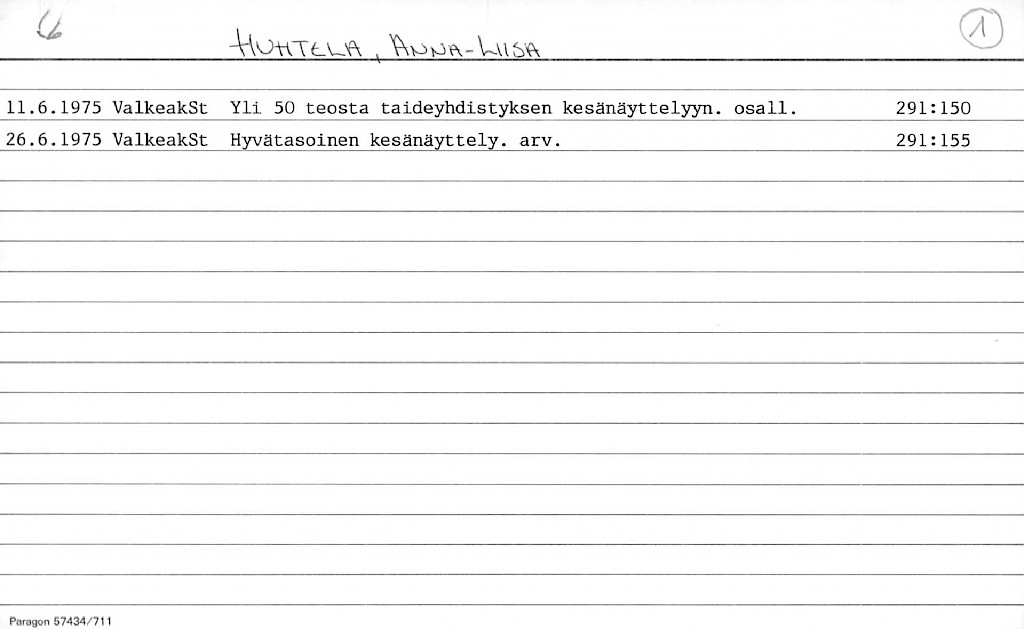 HUHTELA, ANNA-LIISA
1
11.6.1975 ValkeakSt Yli 50 teosta taideyhdistyksen kesänäyttelyyn. osall. 291:150
26.6.1975 ValkeakSt Hyvätasoinen kesänäyttely. arv. 291:155
Paragon 57434/711